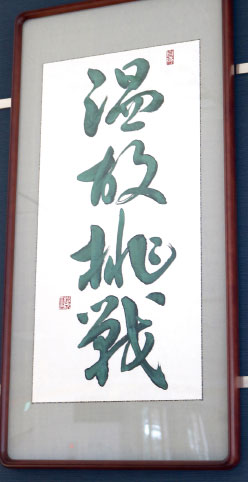 温故挑戦